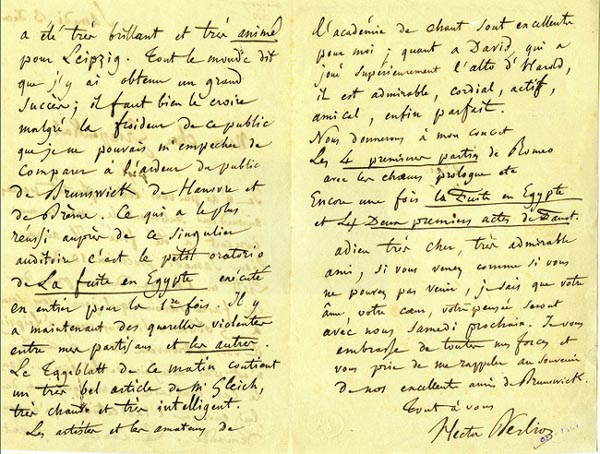 a été très brillant et très animé
pour Leipzig. Tout le monde dit
que j'y ai obtenu un grand
succès ; il faut bien le croire
malgré la froideur de ce public
que je ne pouvais m'empecher de
comparer à l'ardeur du public
de Brunswick de Hanovre et
de Brême. Ce qui a le plus
réussi auprès de ce singulier
auditoire c'est le petit oratorio
de La fuite en Egypte exécuté
en entier pour la 1re fois. Il y
a maintenant des querelles violentes
entre mes partisans et les autres.
Le Eggeblatt de ce matin contient
un très bel article de Mr Gleich,
très chaud et très intelligent.
Les artistes et les amateurs de
l'académie de chant sont excellents
pour moi ; quant a David, qui a
joué supérieurement l'alto d'Harold,
il est admirable, cordial, actif,
amical, enfin parfait.
Nous donnerons à mon concert
Les 4 premieres parties de Romeo
avec les chœurs prologue etc
Encore une fois la Fuite en Egypte
et Deux premiers actes de Faust.
adieu très cher, très admirable
ami, si vous venez comme si vous
ne pouvez pas venir, je sais que votre
âme, votre cœur, votre pensée seront
avec nous samedi prochain. Je vous
embrasse de toutes mes forces et
vous prie de me rappeler au souvenir
de nos excellents amis de Brunswick.
Tout à vous
Hector Berlioz